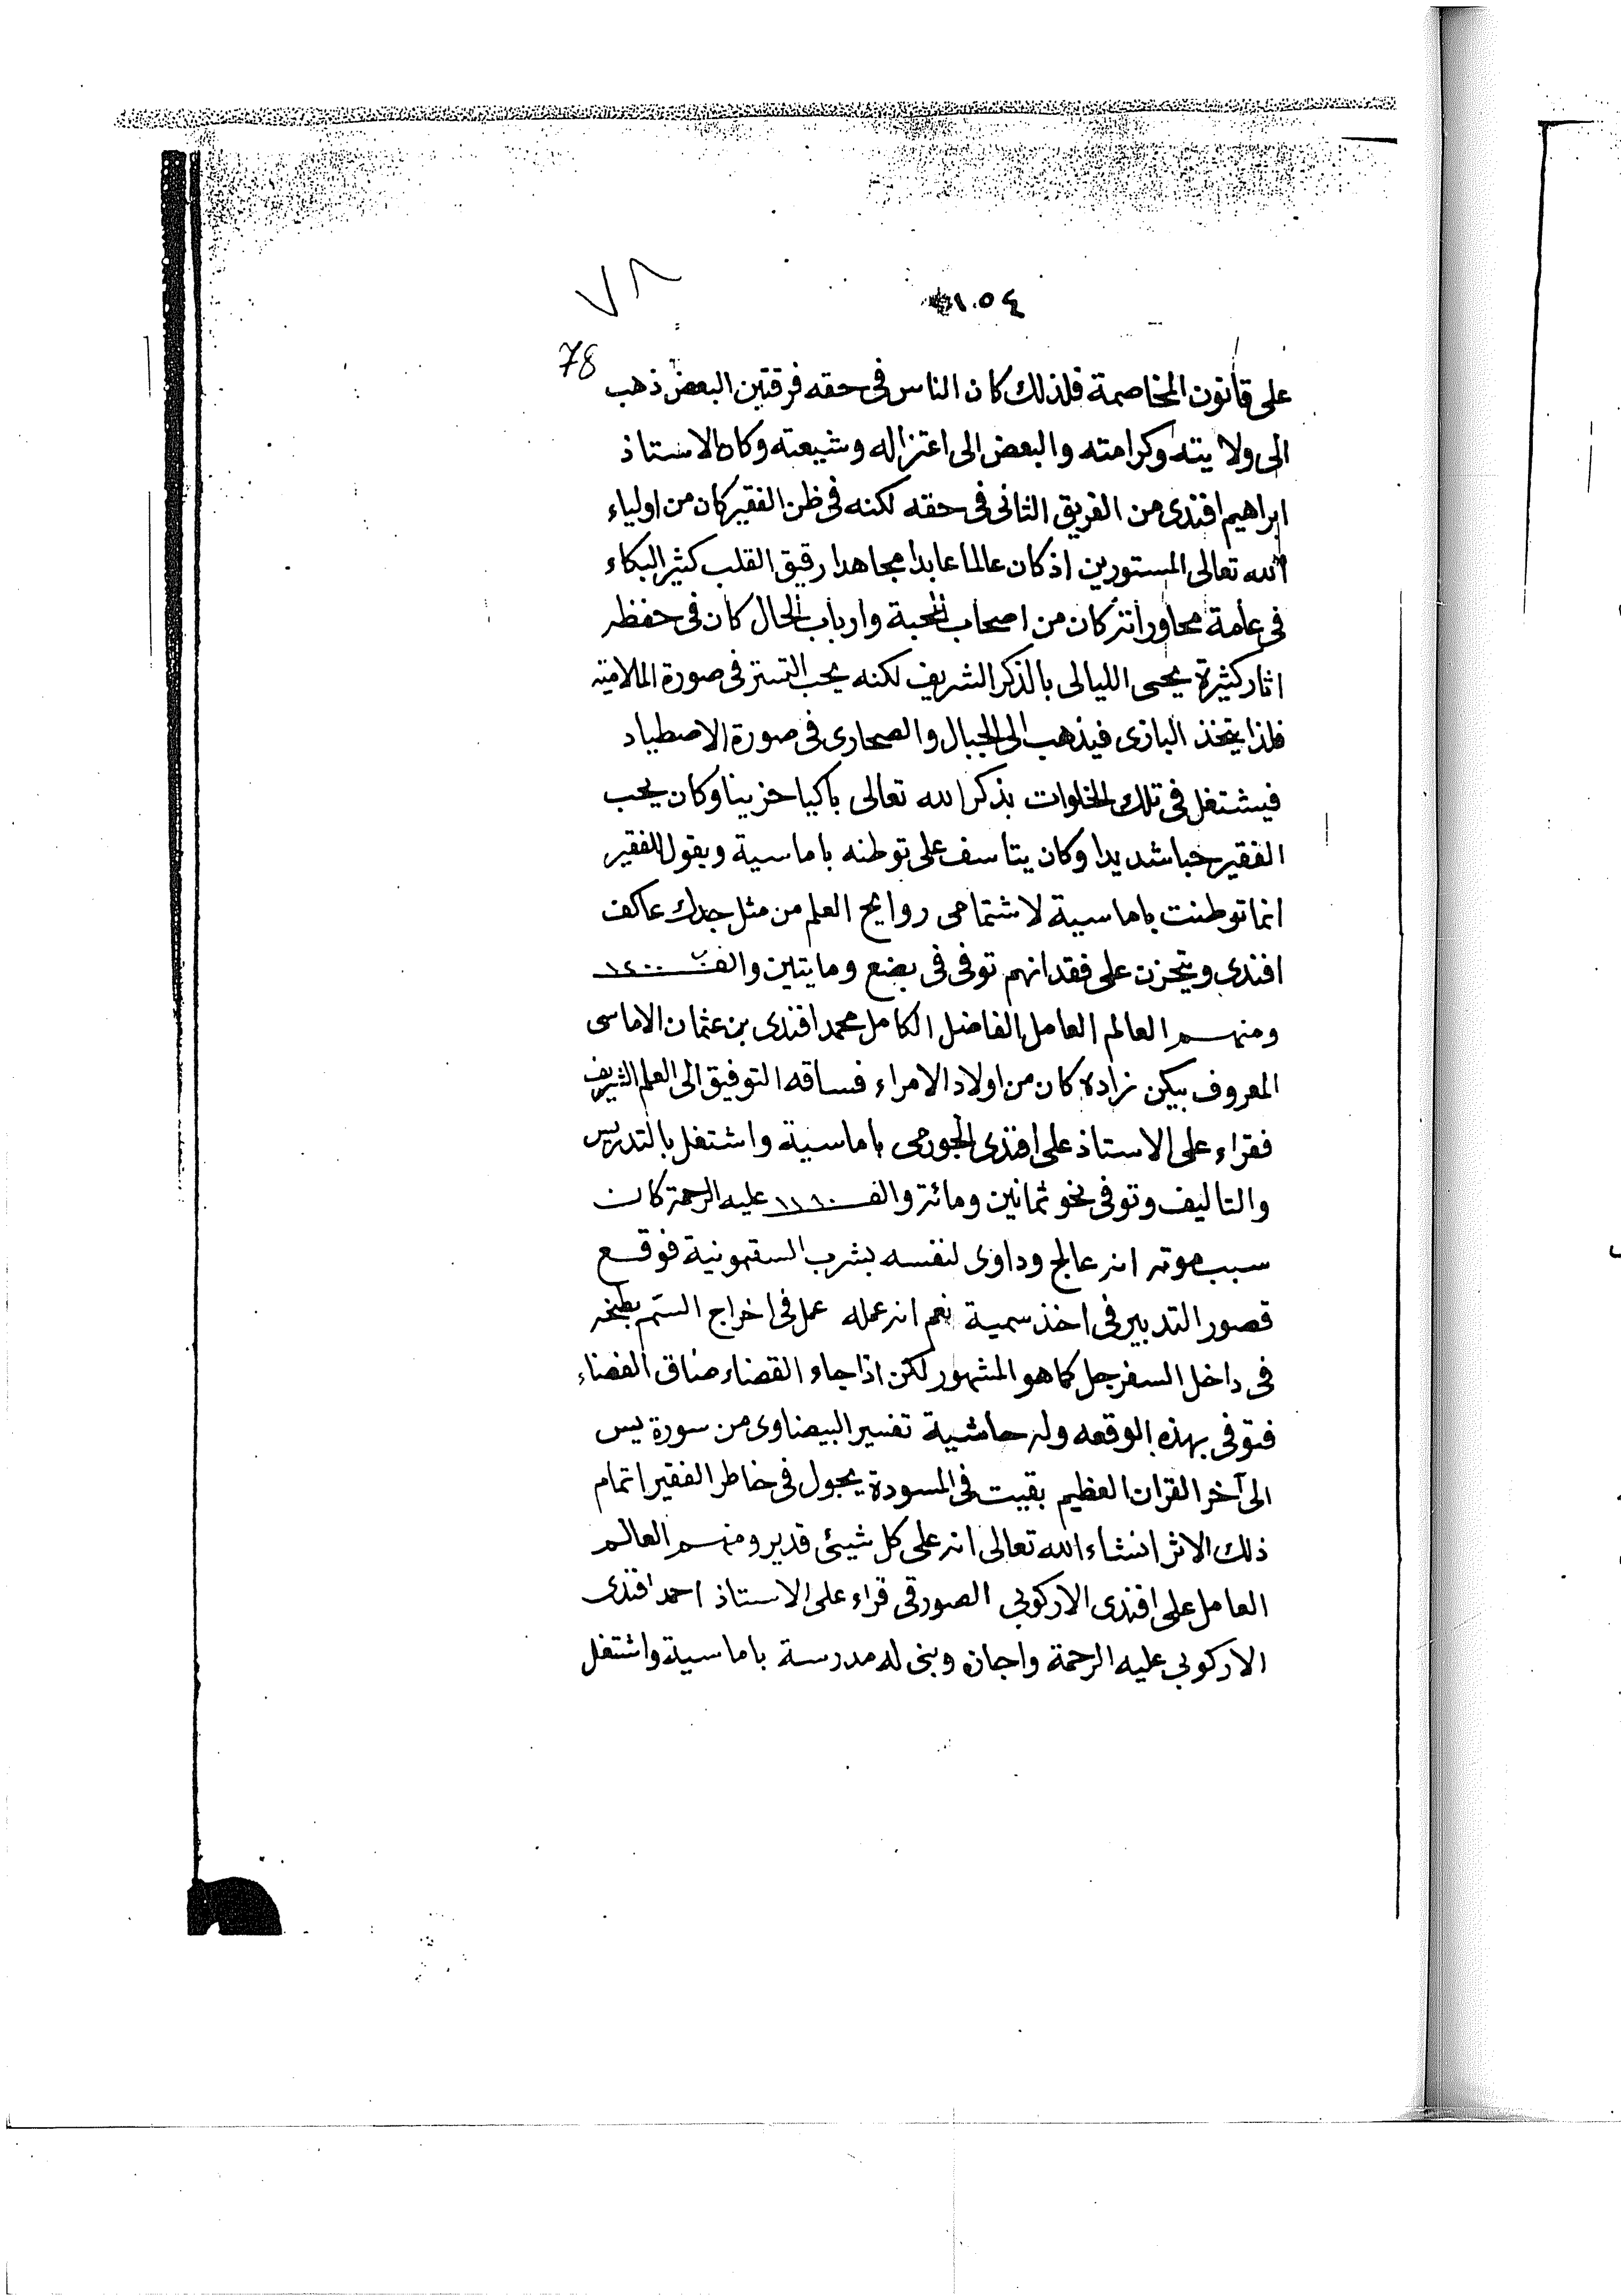 ١٠٥٤
٧٨
78
على قانون المخاصمة فلذلك كان الناس فى حقه فرقتين البعض ذهب
الى ولايته وكرامته والبعض الى اعتزاله وشيعته وكان الاستاذ
ابراهيم افندى من الفريق الثانى فى حقه لكنه فى ظن الفقير كان من اولياء
الله تعالى المستورين اذ كان عالما عابدا مجاهدا رقيق القلب كثير البكاء
فى عامة محاوراته كان من اصحاب المحبة وارباب الحال كان فى حفظه
اثار كثيرة يحيى الليالى بالذكر الشريف لكنه يحب التستر فى صورة الملامتيه
فلذا يتخذ البازى فيذهب الى الجبال والصحارى فى صورة الاصطياد
فيشتغل فى تلك الخلوات بذكر الله تعالى باكيا حزينا وكان يحب
الفقير حبا شديدا وكان يتاسف على توطنه باماسية ويقول للفقير
انما توطنت باماسية لاشتمامى روايح العلم من مثل جدك عاكف
افندى ويتحزن على فقدانهم توفى فى بضع ومايتين والف ١٢٠٠
ومنهم العالم العامل الفاضل الكامل محمد افندى بن عثمان الاماسى
المعروف بيكن زاده كان من اولاد الامراء فساقه التوفيق الى العلم الشريف
فقراء على الاستاذ على افندى الجورمى باماسية واشتغل بالتدريس
والتاليف وتوفى نحو ثمانين ومائة والف ١١٨٠ عليه الرحمة كان
سبب موته انه عالج وداوى لنفسه بشرب السقمونية فوقع
قصور التدبير فى اخذ سمية نعم انه عمله عمل فى اخراج السم بطبخه
فى داخل السفرجل كما هو المشهور لكن اذا جاء القضاء ضاق الفضاء
فتوفى بهذه الوقعه وله حاشية تفسير البيضاوى من سورة يس
الى آخر القران العظيم بقيت فى المسودة يجول فى خاطر الفقير اتمام
ذلك الاثر انشاء الله تعالى انه على كل شيئ قدير ومنهم العالم
العامل على افندى الاركوبى الصورقى قراء على الاستاذ احمد افندى
الاركوبى عليه الرحمة واجازه وبنى له مدرسة باماسية واشتغل